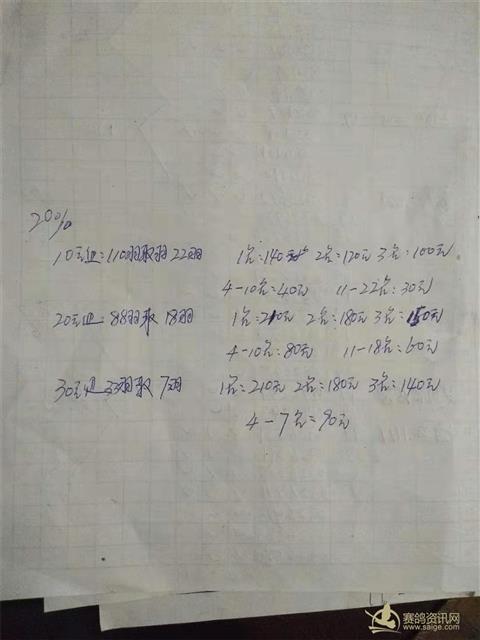 20%
10元组:110羽取羽22羽 1名:140元 2名:120元 3名:100元
4-10名:40元 11-22名:30元
20元组:88羽取18羽 1名:210元 2名:180元 3名:150元
4-10名:80元 11-18名:60元
30元组33羽取7羽 1名:210元 2名:180元 3名:140元
4-7名:90元
赛鸽资讯网
www.saige.com